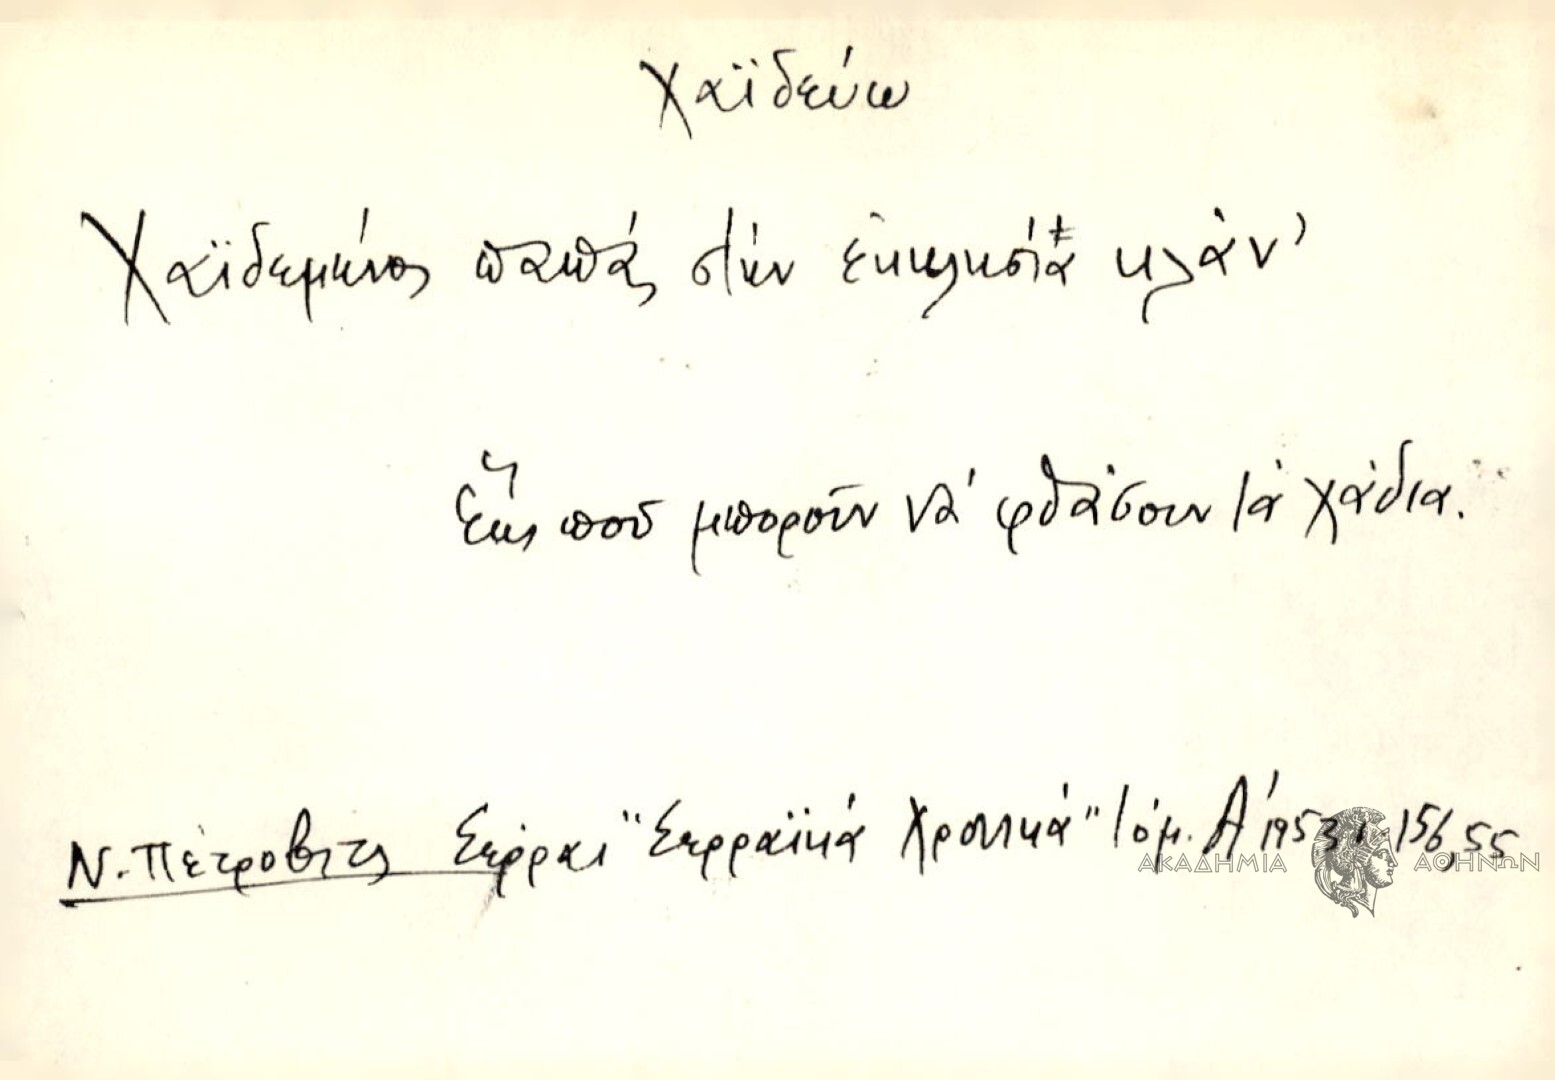 Χαϊδεύω
Χαϊδεμένος παπάς στήν ἐκκλησίά κλάν'
Ἕως ποῦ μποροῦν νά φθάσουν τά χάδια.
Ν. Πέτροβιτς Σέρραι "Σερραϊκά Χρονικά" τόμ. Α' 1953, 156,55
ΑΚΑΔΗΜΙΑ ΑΘΗΝΩΝ